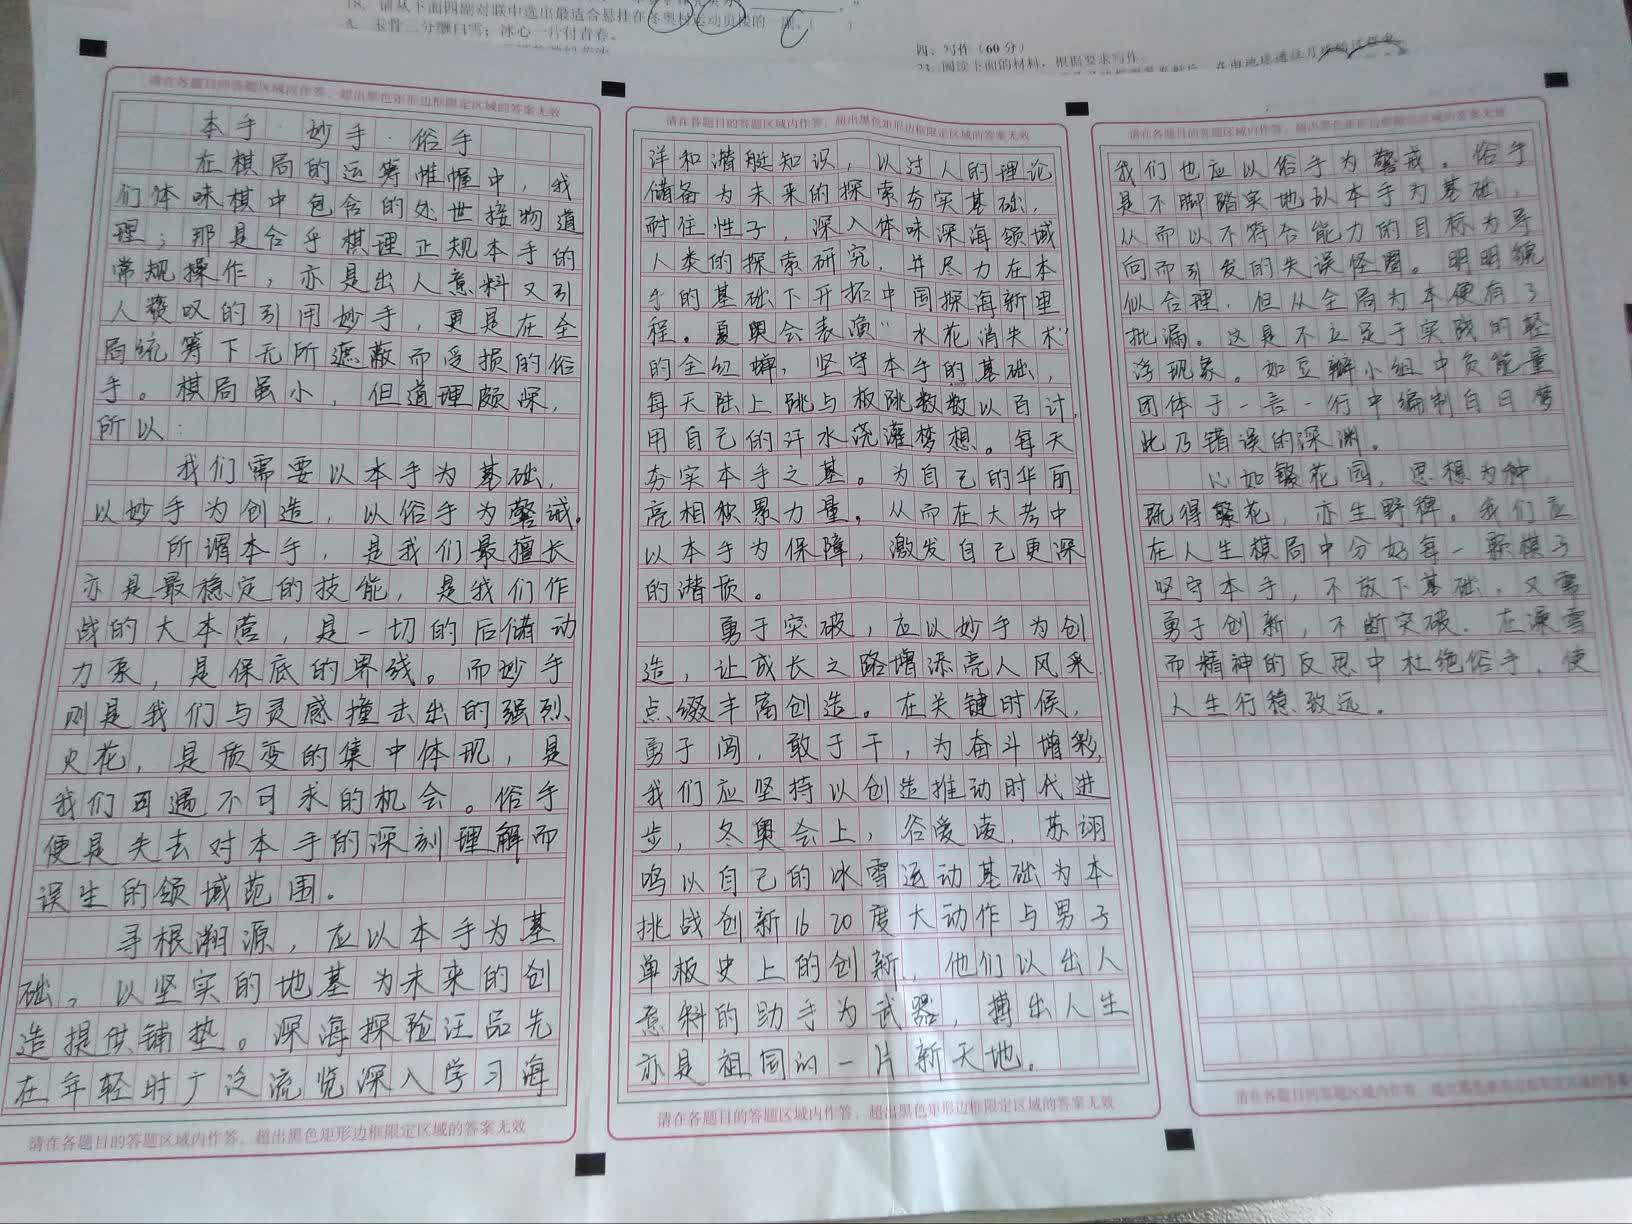 18. 请从下面四副对联中选出最适合悬挂在冬奥村运动员楼的一副。( )
A. 玉骨三分酬白雪；冰心一片付青春。
四、写作（60分）
23. 阅读下面的材料，根据要求写作。
请在各题目的答题区域内作答，超出黑色矩形边框限定区域的答案无效
本手·妙手·俗手
在棋局的运筹帷幄中，我
们体味棋中包含的处世接物道
理；那是合乎棋理正规本手的
常规操作，亦是出人意料又引
人赞叹的引用妙手，更是在全
局统筹下无所遮蔽而受损的俗
手。棋局虽小，但道理颇深，
所以：
我们需要以本手为基础，
以妙手为创造，以俗手为警诫。
所谓本手，是我们最擅长
亦是最稳定的技能，是我们作
战的大本营，是一切的后储动
力泵，是保底的界线。而妙手
则是我们与灵感撞击出的强烈
火花，是质变的集中体现，是
我们可遇不可求的机会。俗手
便是失去对本手的深刻理解而
误生的领域范围。
寻根溯源，应以本手为基
础。以坚实的地基为未来的创
造提供铺垫。深海探险汪品先
在年轻时广泛流览深入学习海
请在各题目的答题区域内作答，超出黑色矩形边框限定区域的答案无效
请在各题目的答题区域内作答，超出黑色矩形边框限定区域的答案无效
洋和潜艇知识，以过人的理论
储备为未来的探索夯实基础，
耐住性子，深入体味深海领域
人类的探索研究，并尽力在本
手的基础下开拓中国探海新里
程。夏奥会表演“水花消失术”
的全红婵，坚守本手的基础，
每天陆上跳与板跳数数以百计，
用自己的汗水浇灌梦想。每天
夯实本手之基。为自己的华丽
亮相积累力量，从而在大考中
以本手为保障，激发自己更深
的潜质。
勇于突破，应以妙手为创
造，让成长之路增添亮人风采
点缀丰富创造。在关键时候，
勇于闯，敢于干，为奋斗增彩，
我们应坚持以创造推动时代进
步，冬奥会上，谷爱凌，苏翊
鸣以自己的冰雪运动基础为本
挑战创新1620度大动作与男子
单板史上的创新，他们以出人
意料的助手为武器，搏出人生
亦是祖国的一片新天地。
请在各题目的答题区域内作答，超出黑色矩形边框限定区域的答案无效
请在各题目的答题区域内作答，超出黑色矩形边框限定区域的答案无效
我们也应以俗手为警戒。俗手
是不脚踏实地以本手为基础，
从而以不符合能力的目标为导
向而引发的失误怪圈。明明貌
似合理，但从全局为本便有了
批漏。这是不立足于实战的轻
浮现象。如豆瓣小组中负能量
团体于一言一行中编制白日梦
此乃错误的深渊。
心如繁花园，思想为种，
既得繁花，亦生野稗。我们应
在人生棋局中分好每一颗棋子
坚守本手，不放下基础，又需
勇于创新，不断突破，在澡雪
而精神的反思中杜绝俗手，使
人生行稳致远。
请在各题目的答题区域内作答，超出黑色矩形边框限定区域的答案无效